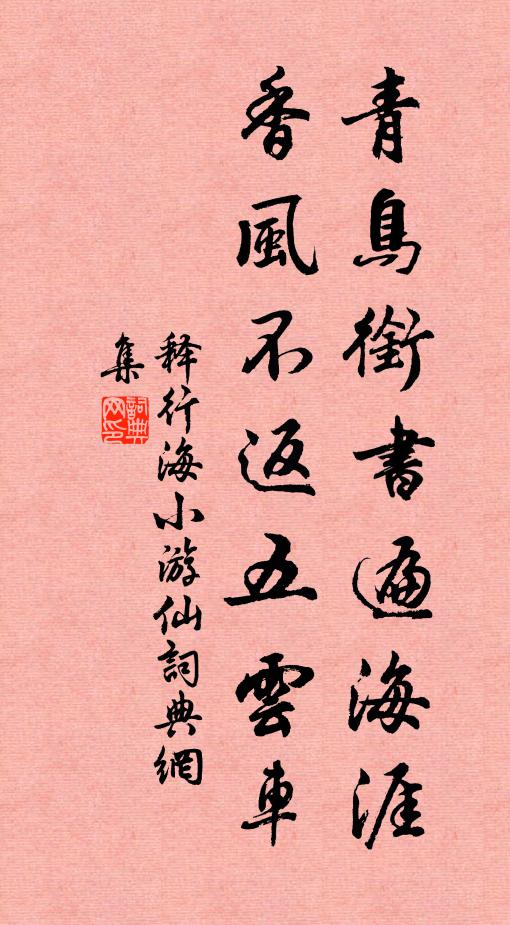 青鳥銜書遍海涯
香風不返五雲車
释行海小游仙詞典網
集
詞典
网印